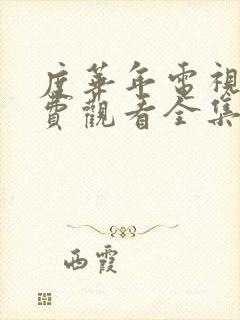 度華年電視
費觀看全集
西霞